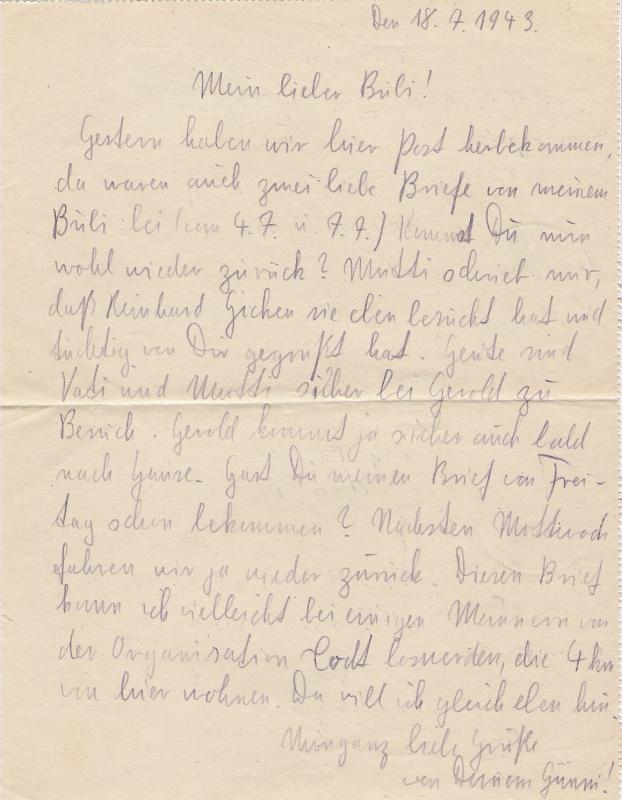 Den 18. 7. 1943.
Mein lieber Bubi!
Gestern haben wir hier Post herbekommen,
da waren auch zwei liebe Briefe von meinem
Bubi bei (vom 4. 7. u. 7. 7.) Kommst Du nun
wohl wieder zurück? Mutti schrieb mir,
daß Reinhard sie eben besucht hat und
tüchtig von Dir gegrüßt hat. Heute sind
Vati und Mutti sicher bei Gerold zu
Besuch. Gerold kommt ja sicher auch bald
nach Hause. Hast Du meinen Brief von Frei-
tag schon bekommen? Nächsten Mittwoch
fahren wir ja wieder zurück. Diesen Brief
kann ich vielleicht bei einigen Männern von
der Organisation Todt loswerden, die 4 km
von hier wohnen. Da will ich gleich eben hin.
Nun ganz liebe Grüße
von Deinem Günni!